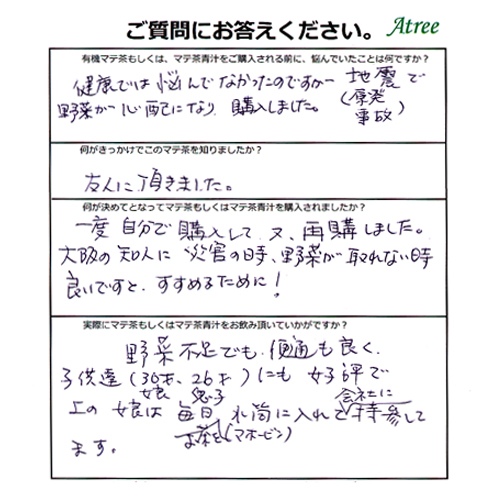 ご質問にお答えください。 Atree
有機マテ茶もしくは、マテ茶青汁をご購入される前に、悩んでいたことは何ですか?
健康では悩んでなかったのですが 地震で
野菜が心配になり 購入しました。(原発
事故)
何がきっかけでこのマテ茶を知りましたか?
友人に頂きました。
何が決めてとなってマテ茶もしくはマテ茶青汁を購入されましたか?
一度自分で購入して、又、再購しました。
大阪の知人に災害の時、野菜が取れない時
良いですと、すすめるために!
実際にマテ茶もしくはマテ茶青汁をお飲み頂いていかがですか?
野菜不足でも、便通も良く、
子供達(36才、26才)にも好評で
娘 息子 会社に
上の娘は毎日水筒に入れて持参して
お茶を(マホービン)
ます。